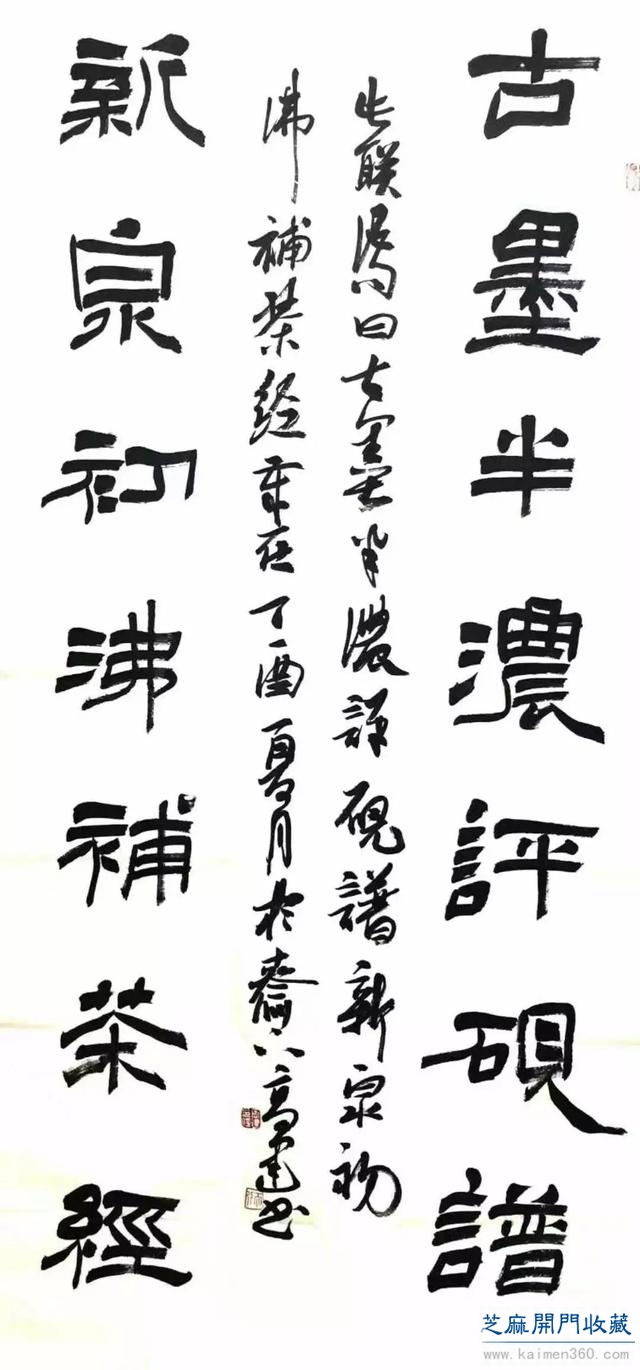 古墨半濃評硯譜
此联曰古墨半濃評硯譜新泉初
沸補茶經歲在丁酉夏月於齋下高建书
新泉初沸補茶經
芝麻開門收藏
www.kaimen360.com